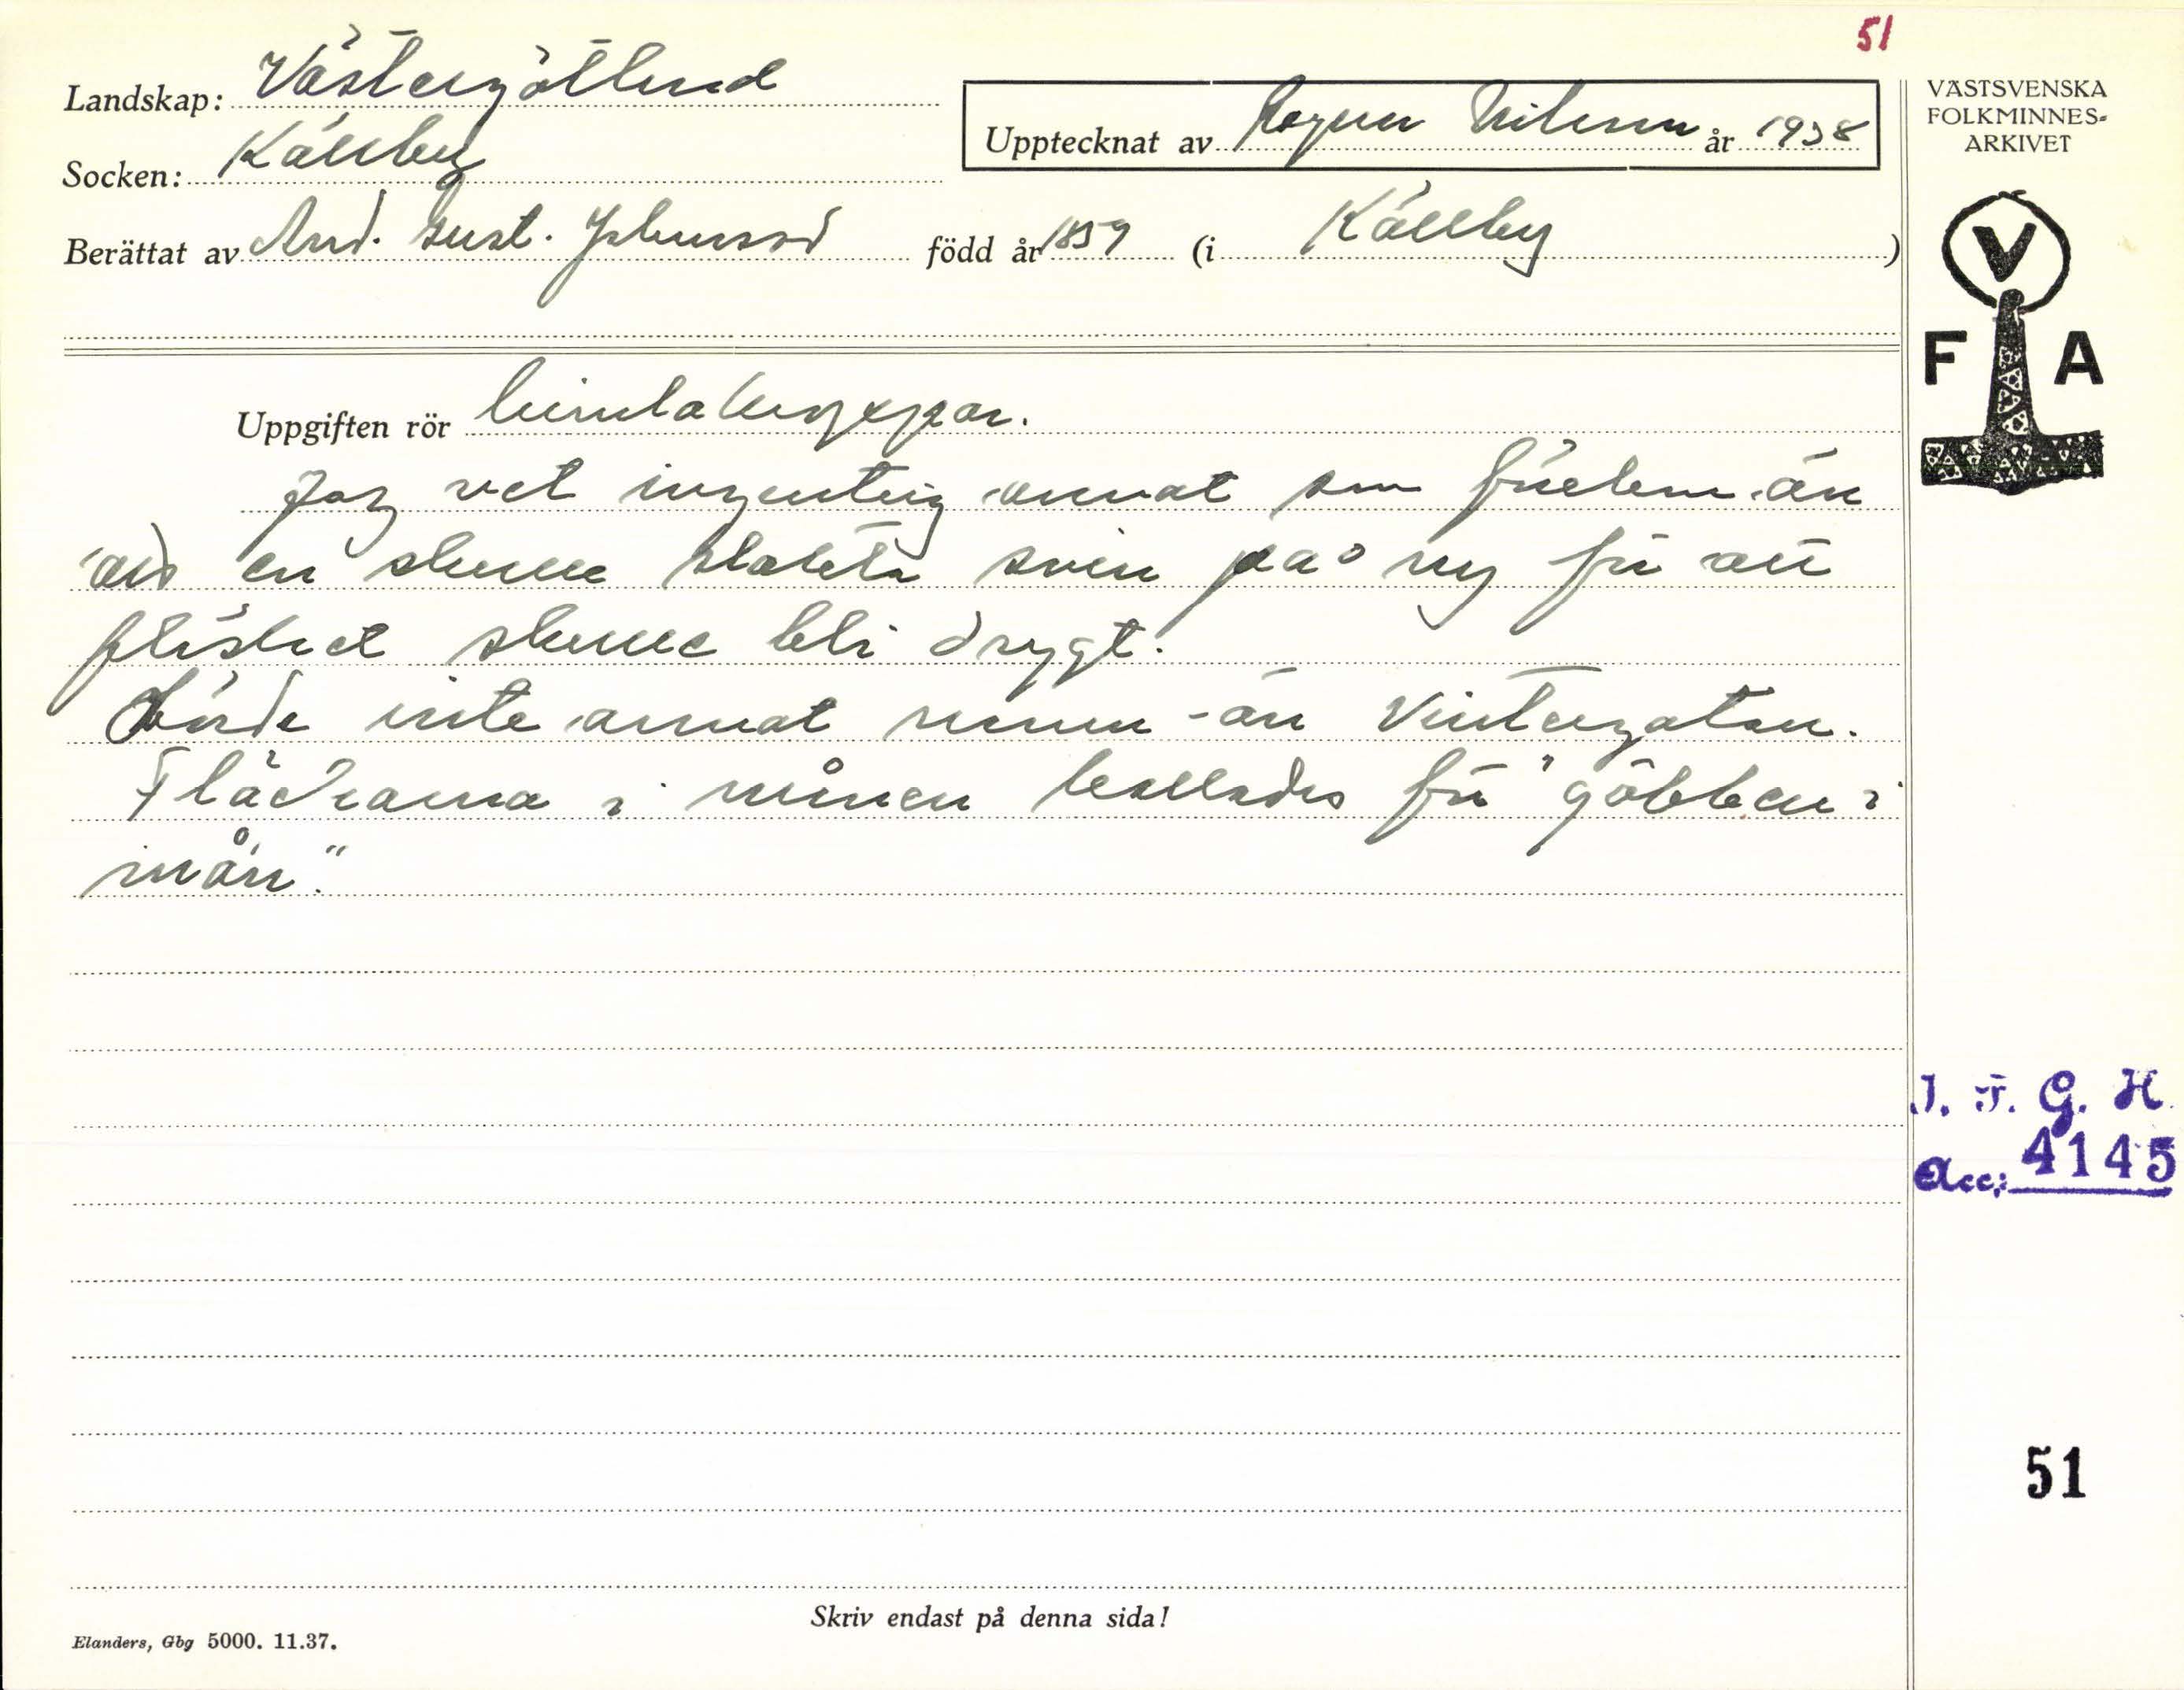 51
Landskap: Västergötland
Socken: Källby
Upptecknat av Ragnar Nilsson år 1938
Berättat av And. Gust. Johansson född år 1859 (i Källby)
VÄSTSVENSKA
FOLKMINNES-
ARKIVET
V
F A
Uppgiften rör himlakroppar.
Jag vet ingenting annat som före än
att en skulle slakta svin på ny för att
fläsket skulle bli drygt.
Hörde inte annat namn än Vintergatan.
Fläckarna i månen kallades för "göbben i
mån".
I. F. G. H.
Acc: 4145
51
Skriv endast på denna sida!
Elanders, Gbg 5000. 11.37.